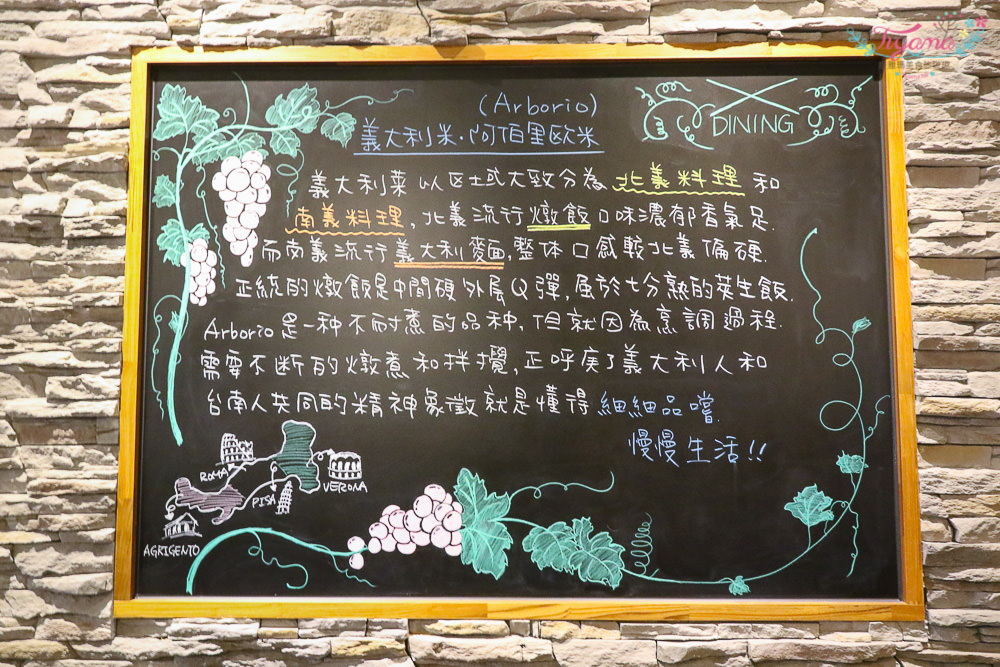 Tiyama
(Arborio)
DINING
義大利米.阿伯里歐米
義大利菜以区域大致分為北義料理和
南義料理,北義流行燉飯口味濃郁香氣足.
而南義流行義大利麵,整体口感較北義偏硬.
正統的燉飯是中間硬外层Q彈,屬於七分熟的夾生飯.
Arborio是一种不耐煮的品种,但就因為烹調過程.
需要不断的燉煮和拌攪,正呼应了義大利人和
台南人共同的精神象徵就是懂得細細品嚐.
慢慢生活!!
ROMA
VERONA
PISA
AGRIGENTO